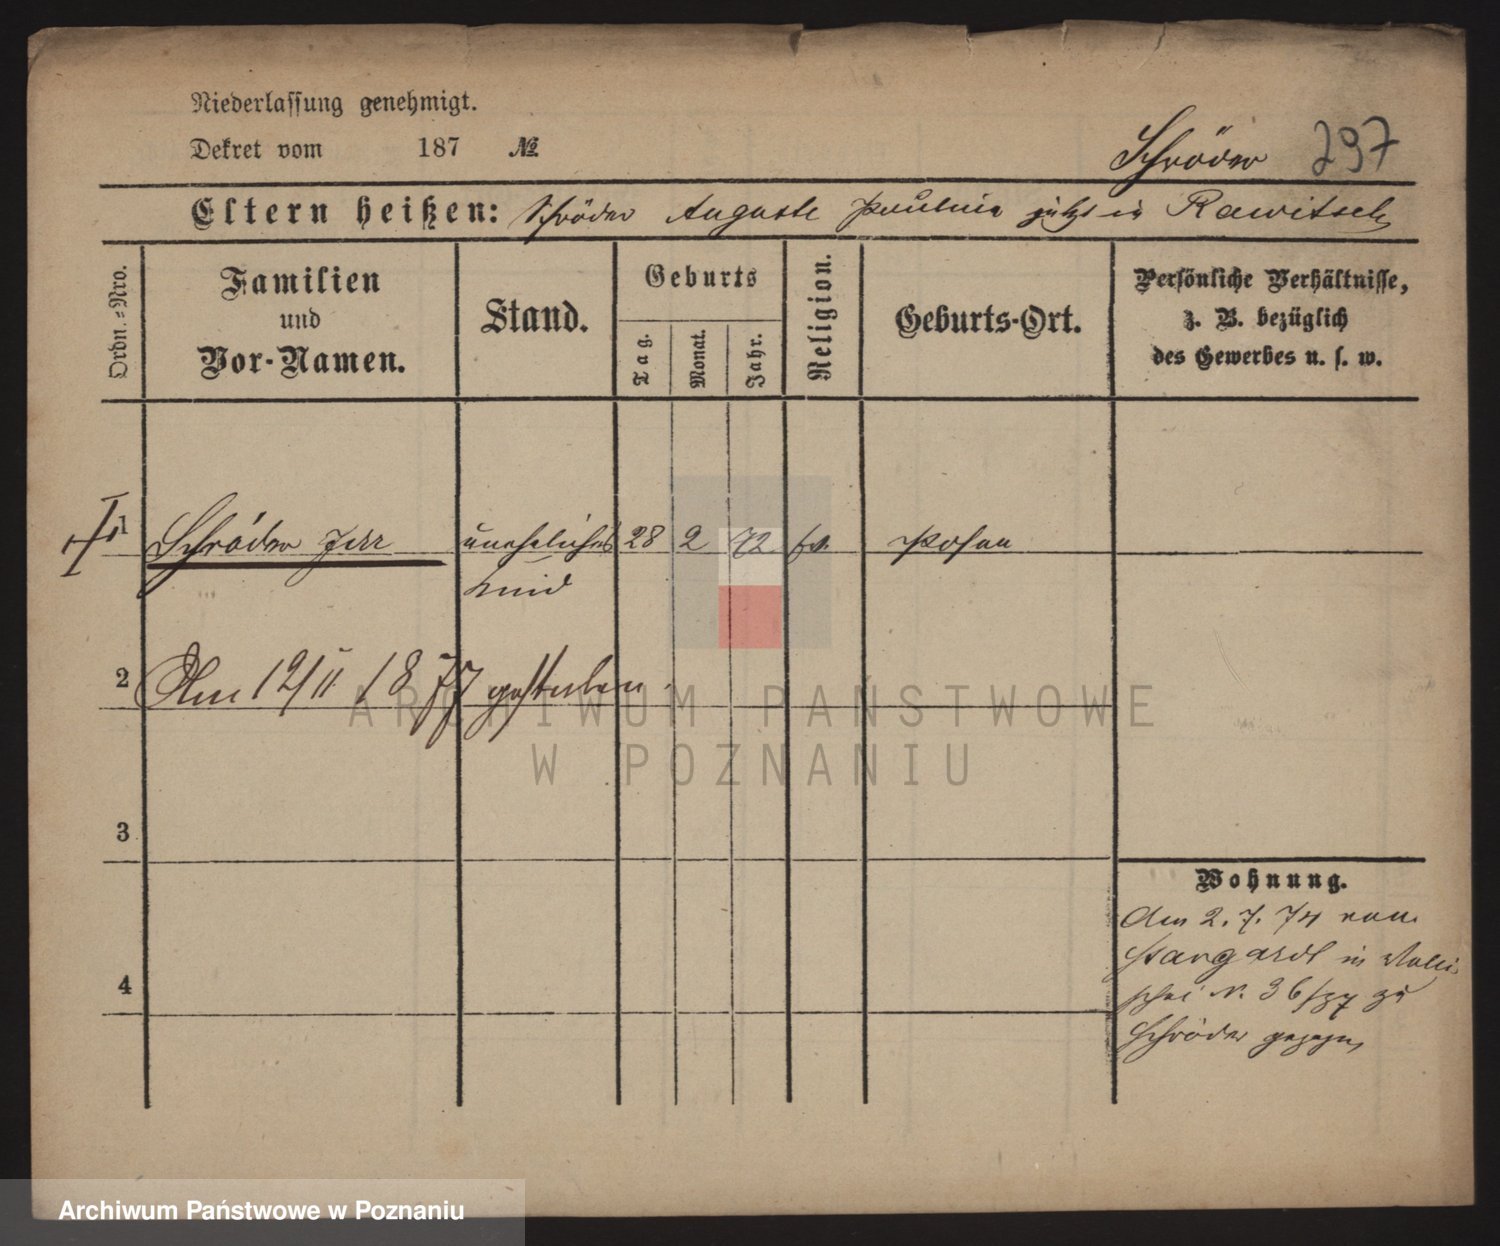 Niederlassung genehmigt.
Dekret vom 187 №
Schröder 297
Eltern heißen: Schröder Auguste Pauline jetzt in Rawitsch
Ordn.-Nro.
Familien
und
Vor-Namen.
Stand.
Geburts
Tag.
Monat.
Jahr.
Religion.
Geburts-Ort.
Persönliche Verhältnisse,
z. B. bezüglich
des Gewerbes u. s. w.
1 Schröder uneheliches 28 2 72 ev. Posen
Kind
2 Am 12/II 1877 gestorben.
3
4
Wohnung.
Am 2. 7. 74 von
Stargardt in Walli
schei N. 36/37 zu
Schröder gezogen
ARCHIWUM PAŃSTWOWE
W POZNANIU
Archiwum Państwowe w Poznaniu